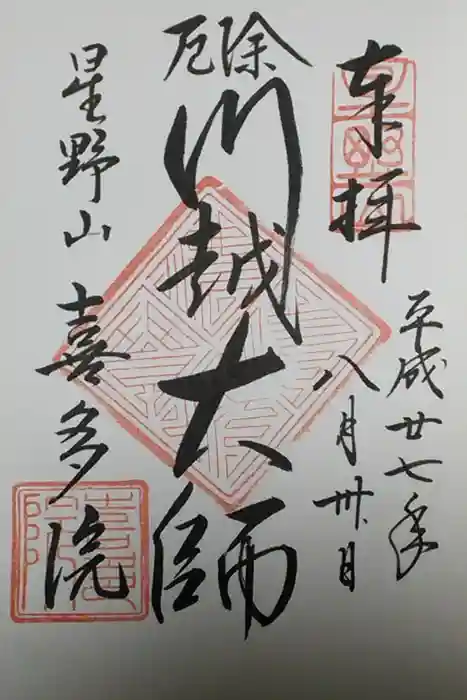 奉拝
平成廿七年
八月卅日
除厄
川越大師
星野山
喜多院